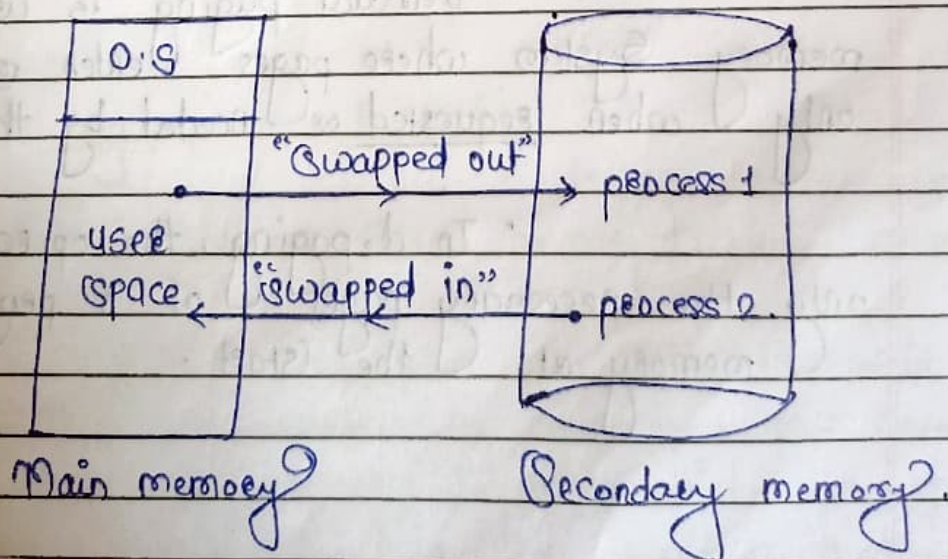 O.S
"swapped out"
process 1
user
space
"swapped in"
process 2.
Main memory
Secondary memory.